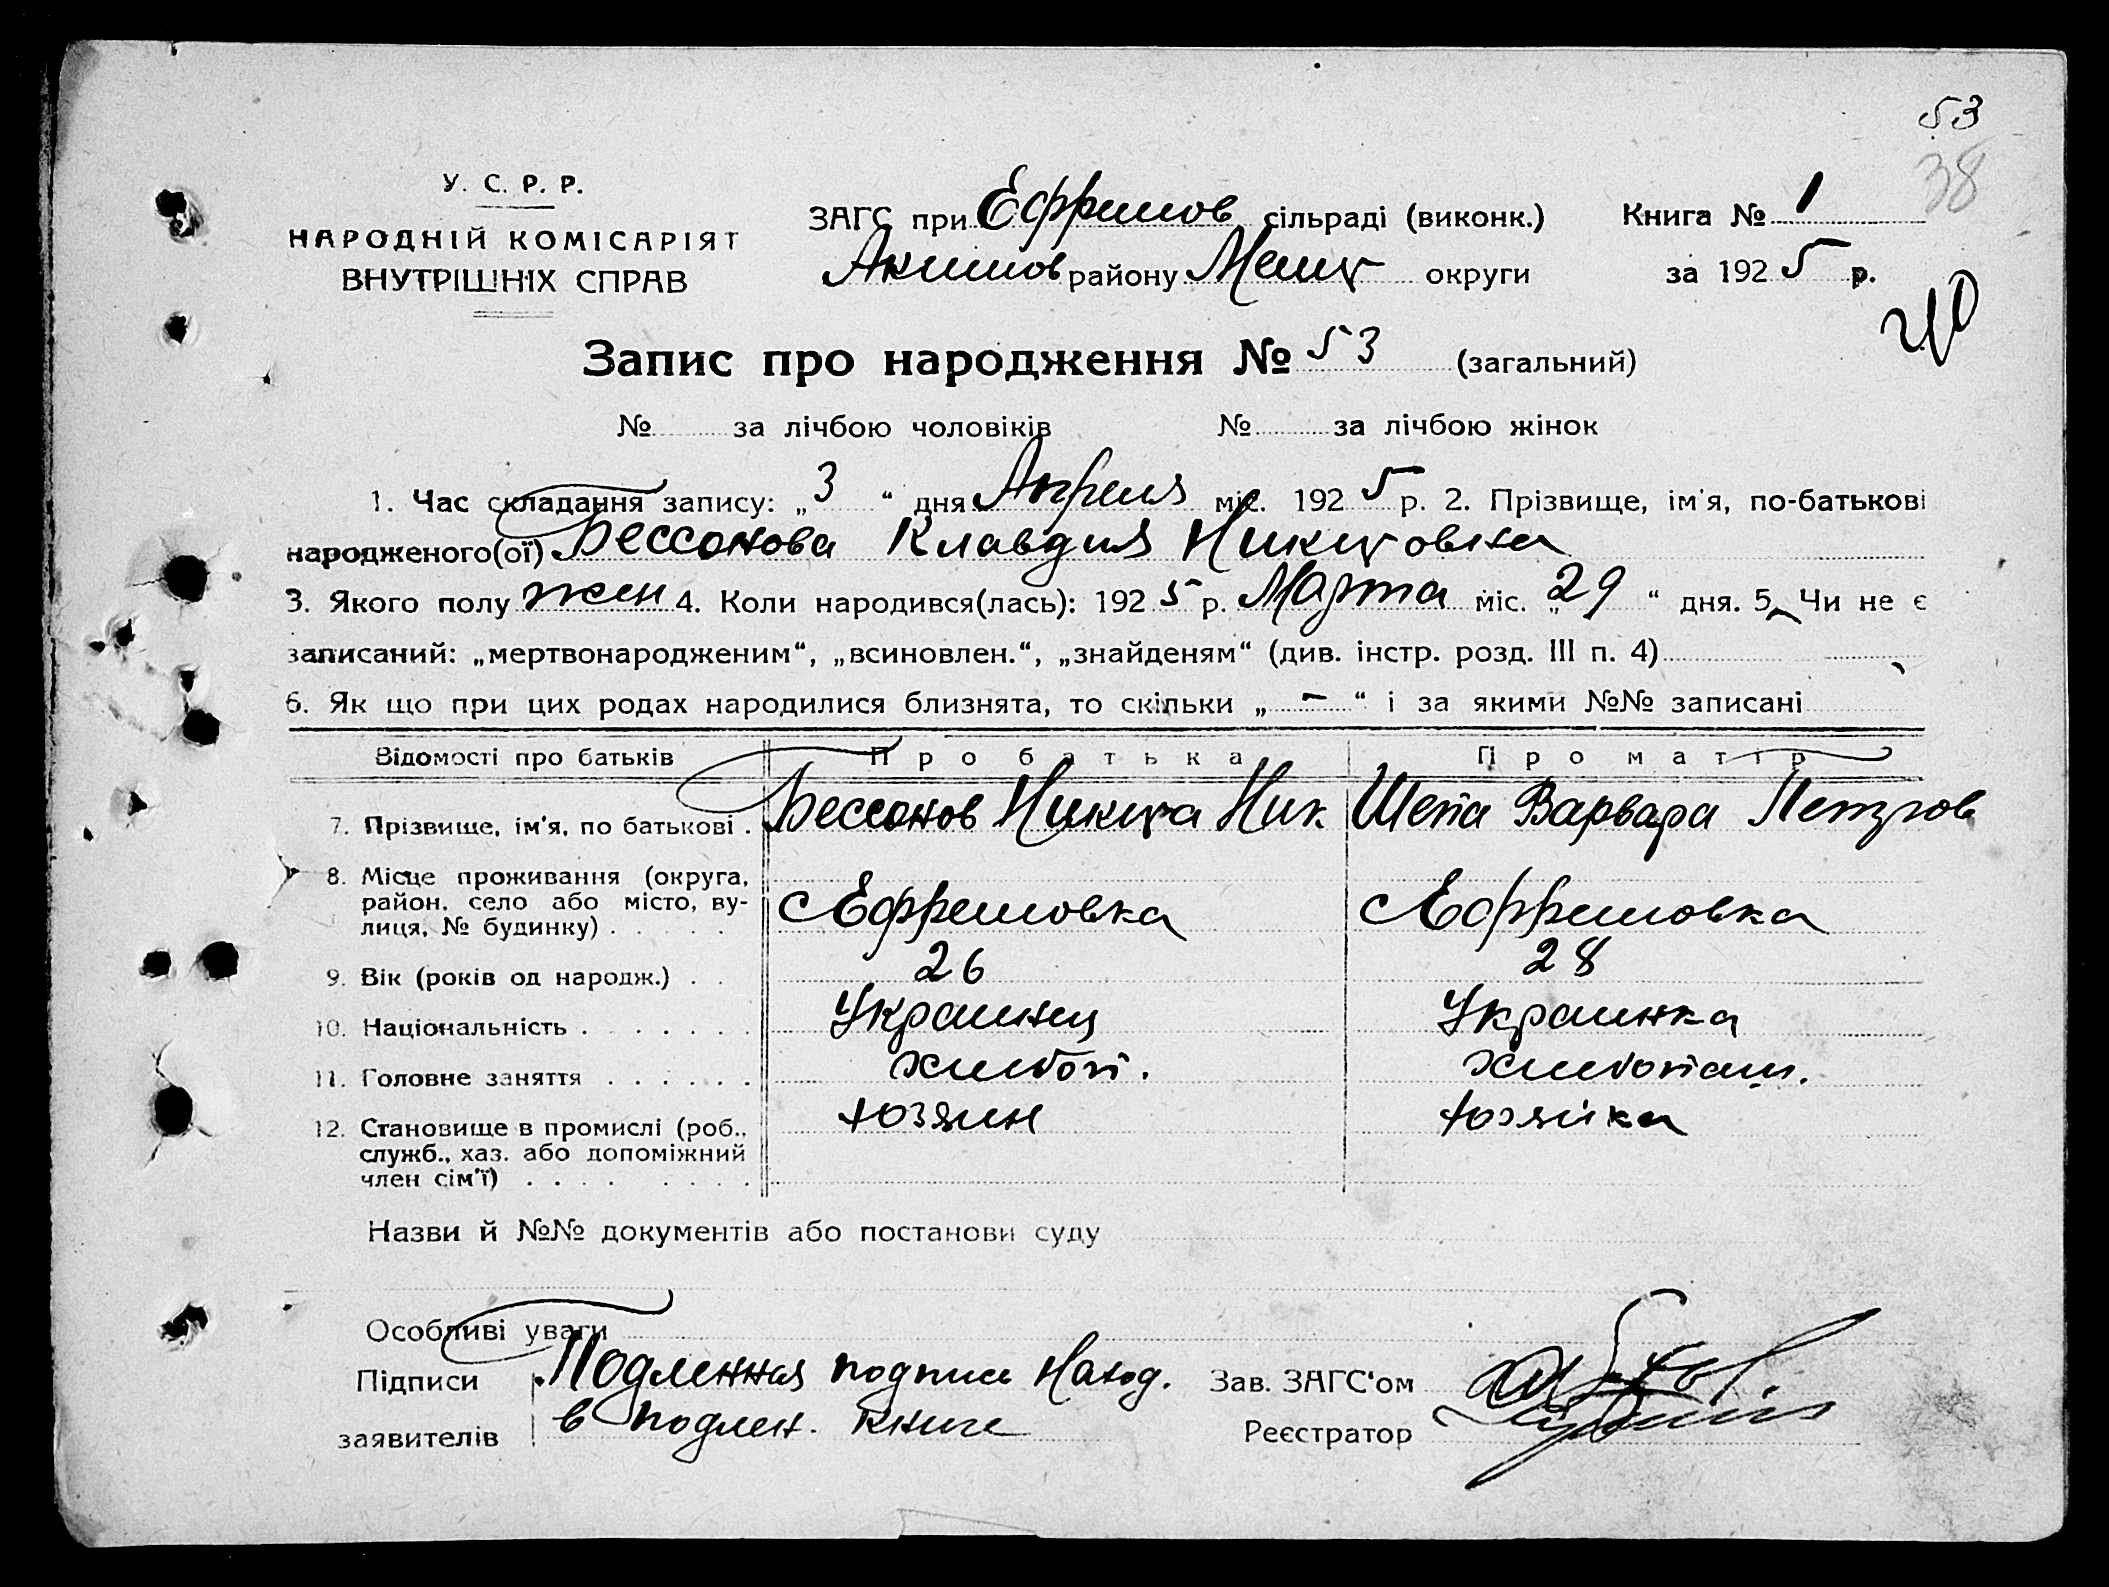 53
38
У. С. Р. Р.
НАРОДНІЙ КОМІСАРІЯТ
ВНУТРІШНІХ СПРАВ
ЗАГС при Ефремов сільраді (виконк.)
Акимов району Мелит округи
Книга № 1
за 1925 р.
40
Запис про народження № 53 (загальний)
№ за лічбою чоловіків № за лічбою жінок
1. Час складання запису: „3“ дня Апреля міс. 1925 р. 2. Прізвище, ім'я, по-батькові
народженого(ої) Бессонова Клавдия Никитовна
3. Якого полу жен 4. Коли народився(лась): 1925 р. Марта міс. „29“ дня. 5. Чи не є
записаний: „мертвонародженим“, „всиновлен.“, „знайденям“ (див. інстр. розд. III п. 4)
6. Як що при цих родах народилися близнята, то скільки „ – “ і за якими №№ записані
Відомості про батьків Про батька Про матір
7. Прізвище, ім'я, по батькові . Бессонов Никита Ник Шепа Варвара Петров
8. Місце проживання (округа, район, село або місто, вулиця, № будинку) . . . . . с Ефремовка с Ефремовка
9. Вік (років од народж.) . . 26 28
10. Національність . . . . . . . Украинец Украинка
11. Головне заняття . . . . . . хлебоп. хлебопаш.
12. Становище в промислі (роб., служб., хаз. або допоміжний член сім'ї) . . . . . . . . хозяин хозяйка
Назви й №№ документів або постанови суду
Особливі уваги
Підписи заявителів Подленная подписи наход.
в подлен. книге
Зав. ЗАГС'ом
Реєстратор